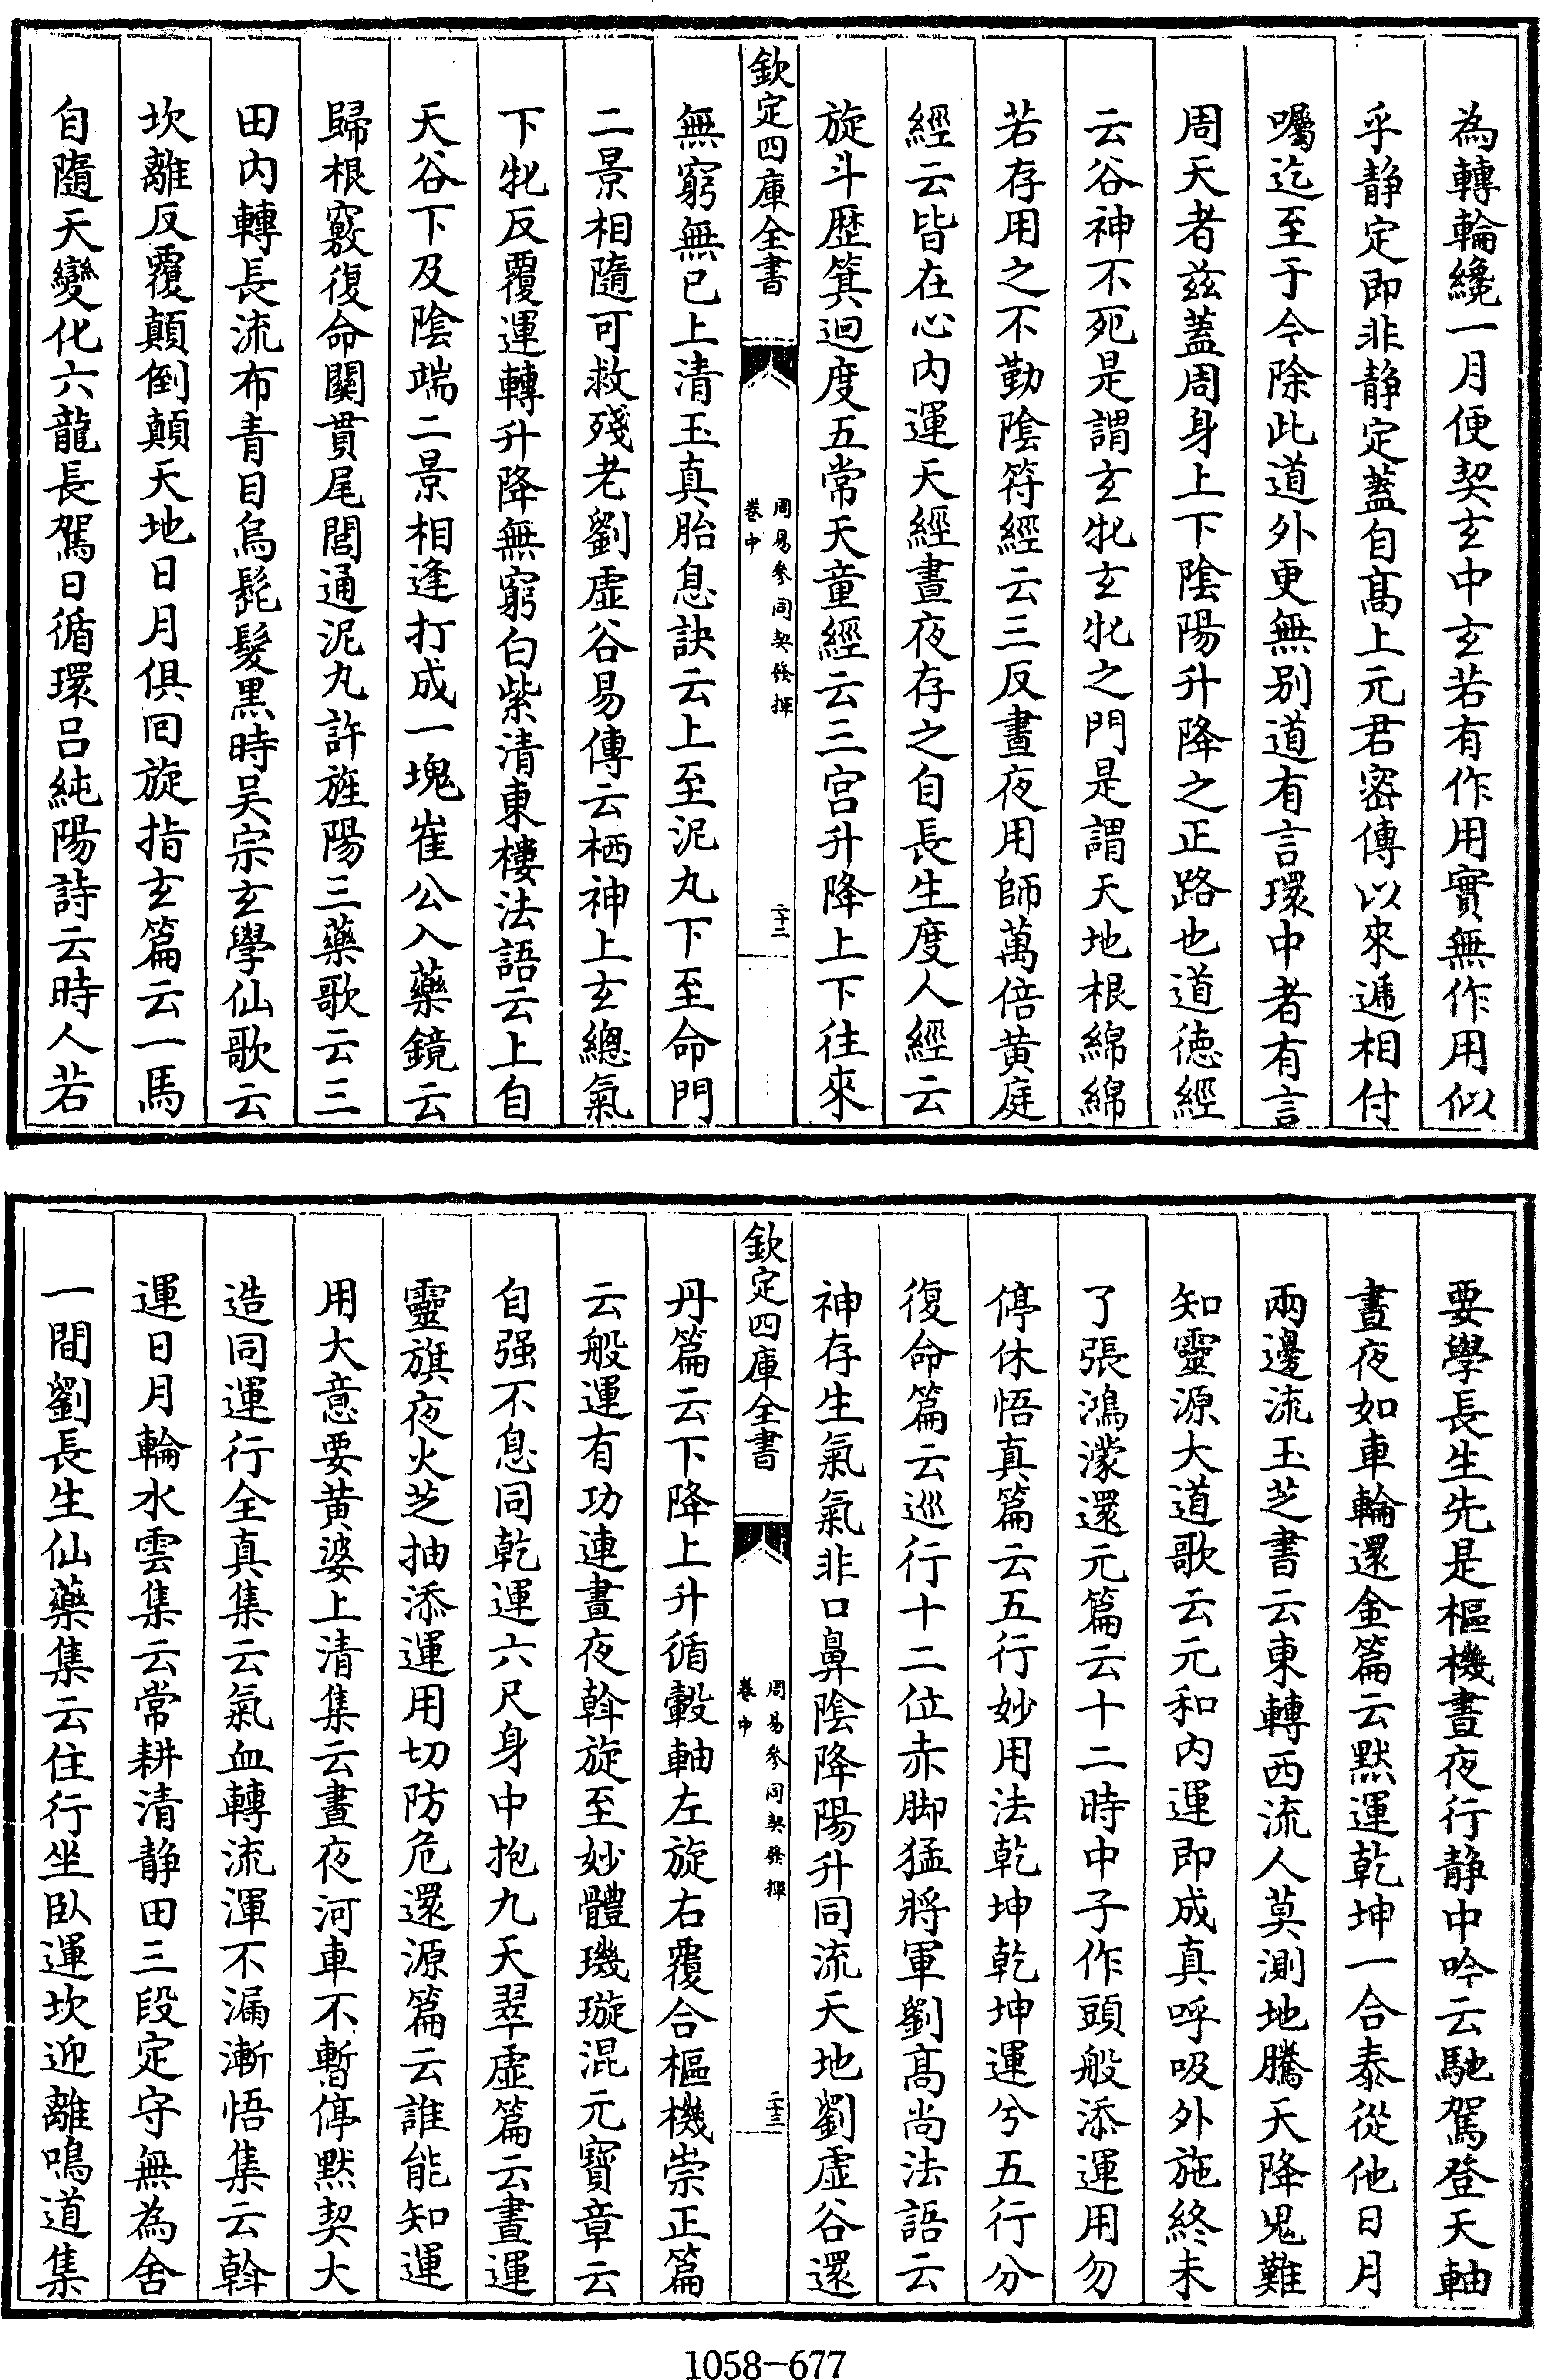 為轉輪纔一月便契玄中玄若有作用實無作用似
乎静定即非静定蓋自髙上元君密傳以來遞相付
囑迄至于今除此道外更無别道有言環中者有言
周天者兹蓋周身上下隂陽升降之正路也道徳經
云谷神不死是謂玄牝玄牝之門是謂天地根綿綿
若存用之不勤隂符經云三反晝夜用師萬倍黄庭
經云皆在心内運天經晝夜存之自長生度人經云
旋斗歴箕迴度五常天童經云三宫升降上下往來
欽定四庫全書
周易參同契發揮
卷中
二十二
無窮無已上清玉真胎息訣云上至泥丸下至命門
二景相隨可救殘老劉虚谷易傳云栖神上玄總氣
下牝反覆運轉升降無窮白紫清東樓法語云上自
天谷下及隂端二景相逢打成一塊崔公入藥鏡云
歸根竅復命闗貫尾閭通泥丸許旌陽三藥歌云三
田内轉長流布青目烏髭髮黒時吴宗玄學仙歌云
坎離反覆顛倒顛天地日月俱囘旋指玄篇云一馬
自隨天變化六龍長駕日循環吕純陽詩云時人若
要學長生先是樞機晝夜行静中吟云馳駕登天軸
晝夜如車輪還金篇云黙運乾坤一合泰從他日月
兩邊流玉芝書云東轉西流人莫測地騰天降鬼難
知靈源大道歌云元和内運即成真呼吸外施終未
了張鴻濛還元篇云十二時中子作頭般添運用勿
停休悟真篇云五行妙用法乾坤乾坤運兮五行分
復命篇云巡行十二位赤脚猛將軍劉髙尚法語云
神存生氣氣非口鼻隂降陽升同流天地劉虚谷還
欽定四庫全書
周易參同契發揮
卷中
二十三
丹篇云下降上升循轂軸左旋右覆合樞機崇正篇
云般運有功連晝夜斡旋至妙體璣璇混元寳章云
自强不息同乾運六尺身中抱九天翠虚篇云晝運
靈旗夜火芝抽添運用切防危還源篇云誰能知運
用大意要黄婆上清集云晝夜河車不暫停黙契大
造同運行全真集云氣血轉流渾不漏漸悟集云斡
運日月輪水雲集云常耕清静田三段定守無為舍
一間劉長生仙藥集云住行坐臥運坎迎離鳴道集
1058-677